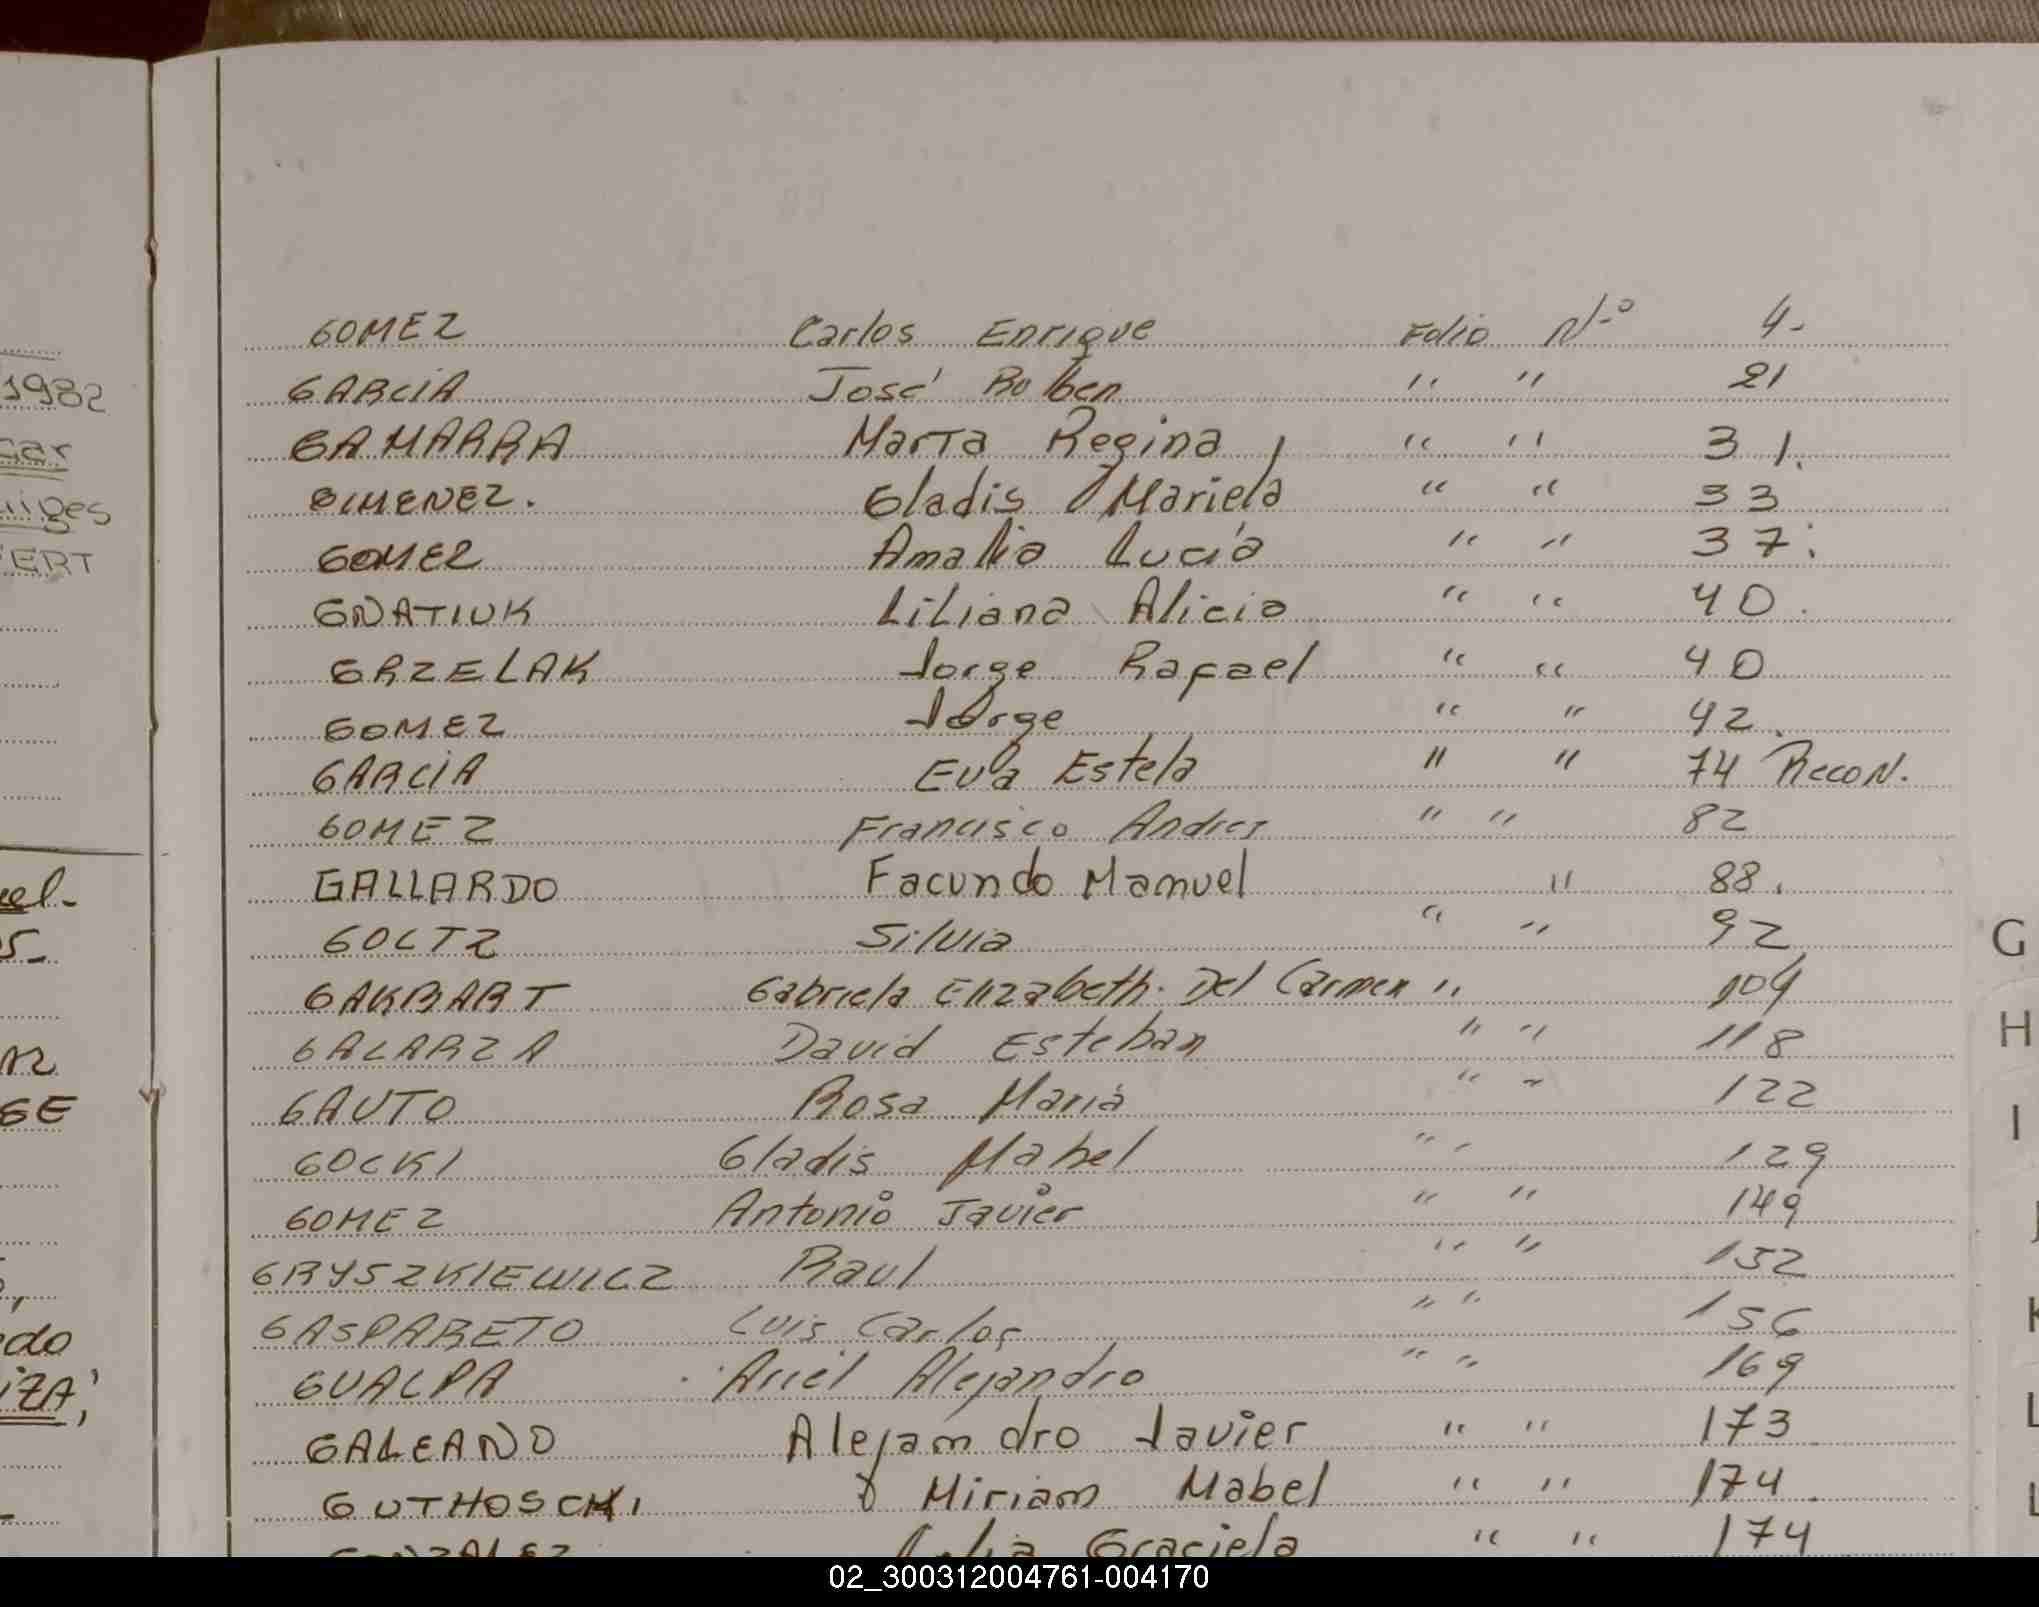 1982
car
uiges
FERT
uel-
5-
GE
do
iZA,
GOMEZ Carlos Enrique Folio Nº 4-
GARCiA José Ruben " " 21
GAMARRA Marta Regina " " 31.
GIMENEZ. Gladis Mariela " " 33
GOMEZ Amalia Lucía " " 37.
GNATIUK Liliana Alicia " " 40.
GRZELAK Jorge Rafael " " 40
GOMEZ Jorge " " 42.
GARCiA Eva Estela " " 74 Recon.
GOMEZ Francisco Andres " " 82
GALLARDO Facundo Manuel " 88.
GOLTZ Silvia " " 92
GAKBART Gabriela Elizabeth. Del Carmen " 104
GALARZA David Esteban " " 118
GAUTO Rosa María " " 122
GOCKI Gladis Mabel " " 129
GOMEZ Antonio Javier " " 149
GRYSZKIEWICZ Raul " " 152
GASPARETO Luis Carlos " " 156
GUALPA Ariel Alejandro " " 169
GALEANO Alejandro Javier " " 173
GUTHOSCKI Miriam Mabel " " 174.
GONZALEZ Graciela " " 174
G
H
I
J
K
L
L
02_300312004761-004170